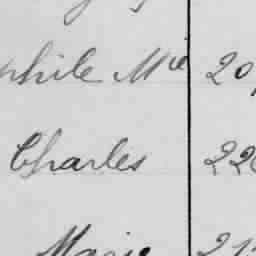 phile Mie 20
Charles 220
Marie 21